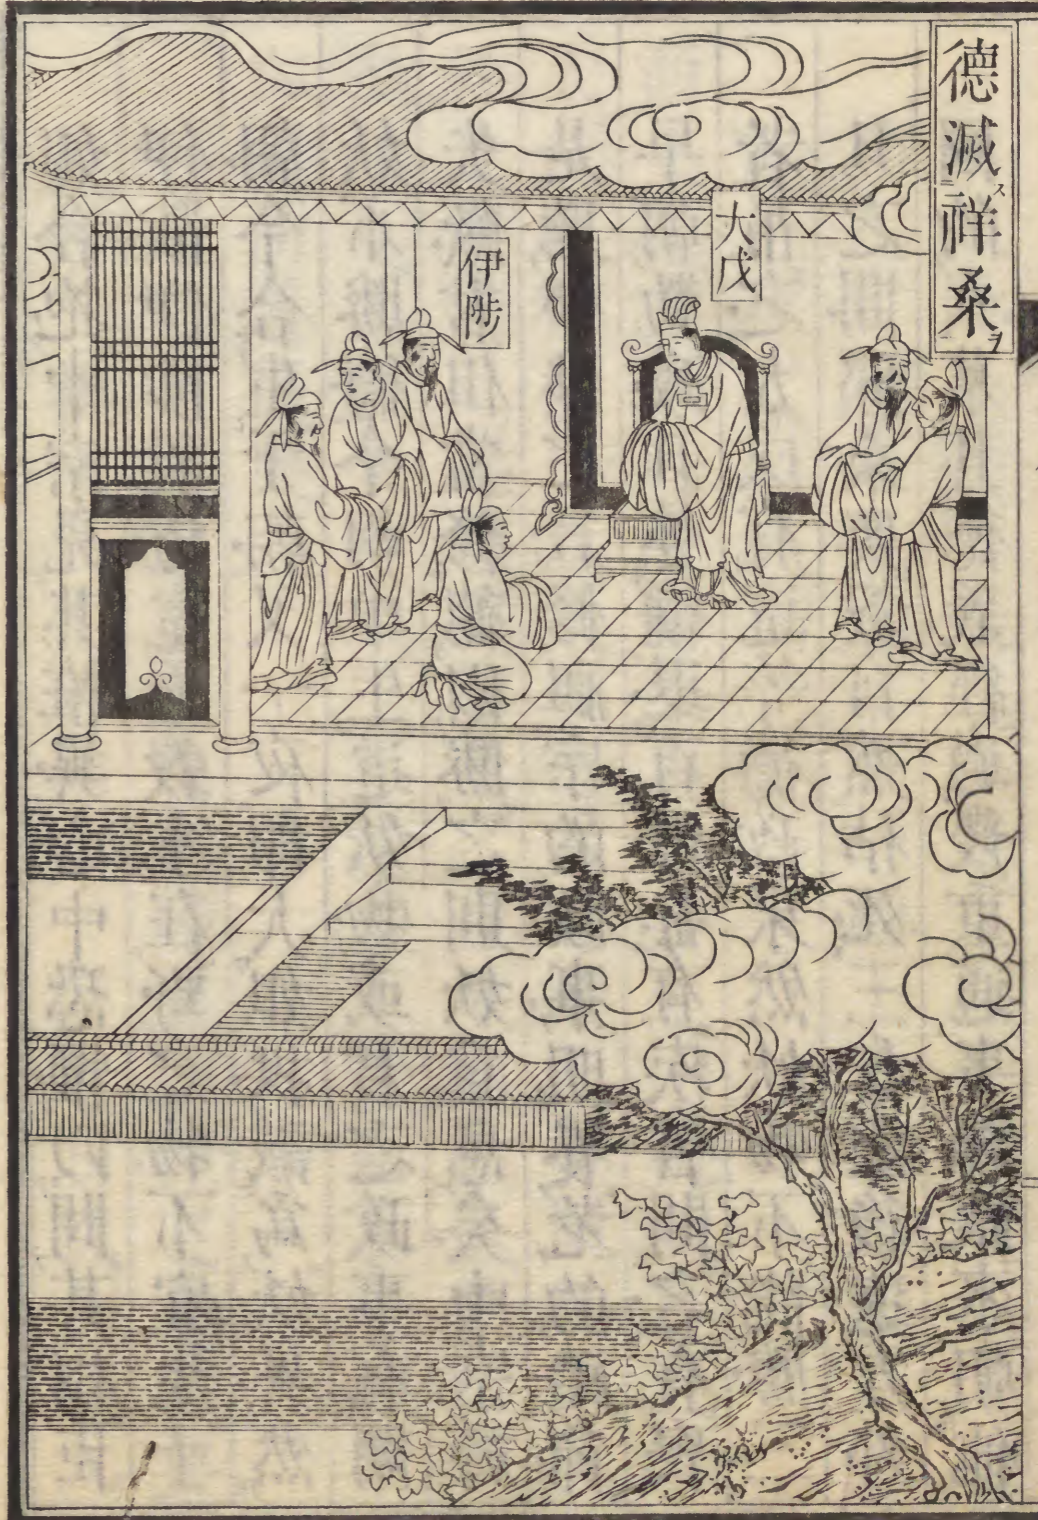 德滅ス祥桑ヲ
大戊
伊陟